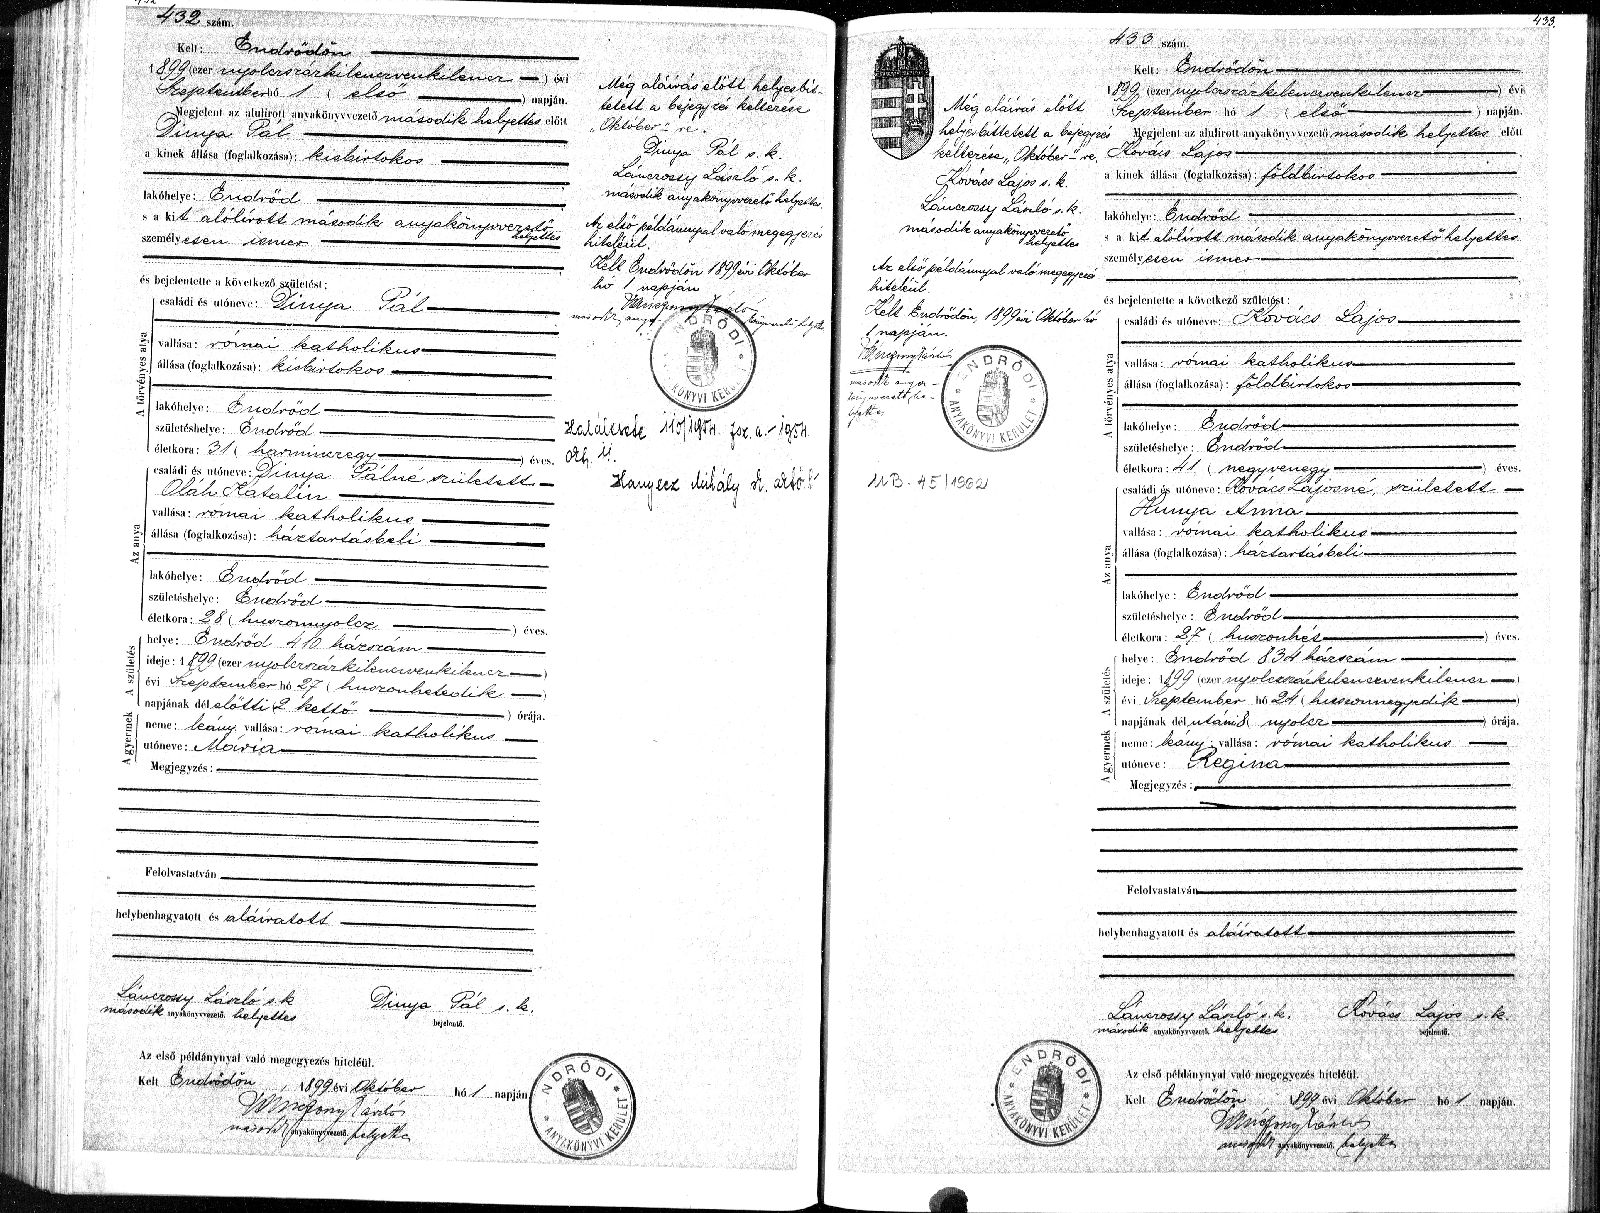 432 szám.
Kelt: Endrődön
1899 (ezer nyolcszázkilencvenkilenc ) évi
Szeptember hó 1 ( első ) napján.
Megjelent az alulirott anyakönyvvezető második helyettes előtt
Dinya Pál
a kinek állása (foglalkozása): kisbirtokos
lakóhelye: Endrőd
s a kit alólírott második anyakönyvvezető
helyettes
személyesen ismer
és bejelentette a következő születést:
A törvényes atya
családi és utóneve: Dinya Pál
vallása: római katholikus
állása (foglalkozása): kisbirtokos
lakóhelye: Endrőd
születéshelye: Endrőd
életkora: 31 ( harmincegy ) éves.
Az anya
családi és utóneve: Dinya Pálné született
Oláh Katalin
vallása: római katholikus
állása (foglalkozása): háztartásbeli
lakóhelye: Endrőd
születéshelye: Endrőd
életkora: 28 ( huszonnyolcz ) éves.
A születés
helye: Endrőd 410 házszám
ideje: 1899 (ezer nyolcszázkilencvenkilencz )
évi Szeptember hó 27 ( huszonhetedik )
napjának dél előtti 2 kettő ) órája.
A gyermek
neme: leány, vallása: római katholikus
utóneve: Mária
Megjegyzés:
Felolvastatván
helybenhagyatott és aláíratott
Lánczossy László s.k.
második anyakönyvvezető. helyettes
Dinya Pál s. k.
bejelentő.
Az első példánynyal való megegyezés hiteléül.
Kelt Endrődön, 1899 évi Október hó 1 napján
második anyakönyvvezető. helyettes
NDRŐDI * ANYAKÖNYVI KERÜLET *
Még aláírás előtt helyesbít-
tetett a bejegyzés keltezése
„Október"-re.
Dinya Pál s. k.
Lánczossy László s. k.
második anyakönyvvezető helyettes.
Az első példánnyal való megegyezés
hiteléül.
Kelt Endrődön 1899 évi Október
hó 1 napján
NDRŐDI * KÖNYVI KERÜ
Halálesete 110/1954. fsz. a. 1954.
Hanyecz Mihály
433.
433 szám.
Kelt: Endrődön
1899 (ezer nyolcszázkilencvenkilencz ) évi
Szeptember hó 1 ( első ) napján.
Megjelent az alulirott anyakönyvvezető második helyettes előtt
Kovács Lajos
a kinek állása (foglalkozása): földbirtokos
lakóhelye: Endrőd
s a kit alólírott második anyakönyvvezető helyettes
személyesen ismer
és bejelentette a következő születést:
A törvényes atya
családi és utóneve: Kovács Lajos
vallása: római katholikus
állása (foglalkozása): földbirtokos
lakóhelye: Endrőd
születéshelye: Endrőd
életkora: 41 ( negyvenegy ) éves.
Az anya
családi és utóneve: Kovács Lajosné, született
Hunya Anna
vallása: római katholikus
állása (foglalkozása): háztartásbeli
lakóhelye: Endrőd
születéshelye: Endrőd
életkora: 27 ( huszonhét ) éves.
A születés
helye: Endrőd 834 házszám
ideje: 1899 (ezer nyolcszázkilencvenkilencz )
évi Szeptember hó 24 ( huszonnegyedik )
napjának dél utáni 8 ( nyolcz ) órája.
A gyermek
neme: leány, vallása: római katholikus
utóneve: Regina
Megjegyzés:
Felolvastatván
helybenhagyatott és aláíratott
Lánczossy László s. k.
második anyakönyvvezető. helyettes
Kovács Lajos s. k.
bejelentő.
Az első példánynyal való megegyezés hiteléül.
Kelt Endrődön 1899 évi Október hó 1 napján.
második anyakönyvvezető. helyettes
ENDRŐDI * ANYAKÖNYVI KERÜLET *
Még aláírás előtt
helyesbíttetett a bejegyzés
keltezése „Október"-re.
Kovács Lajos s. k.
Lánczossy László s. k.
második anyakönyvvezető
helyettes
Az első példánnyal való megegyezés
hiteléül.
Kelt Endrődön, 1899 évi Október hó
1 napján.
ENDRŐDI * ANYAKÖNYVI KERÜLET *
45/1962